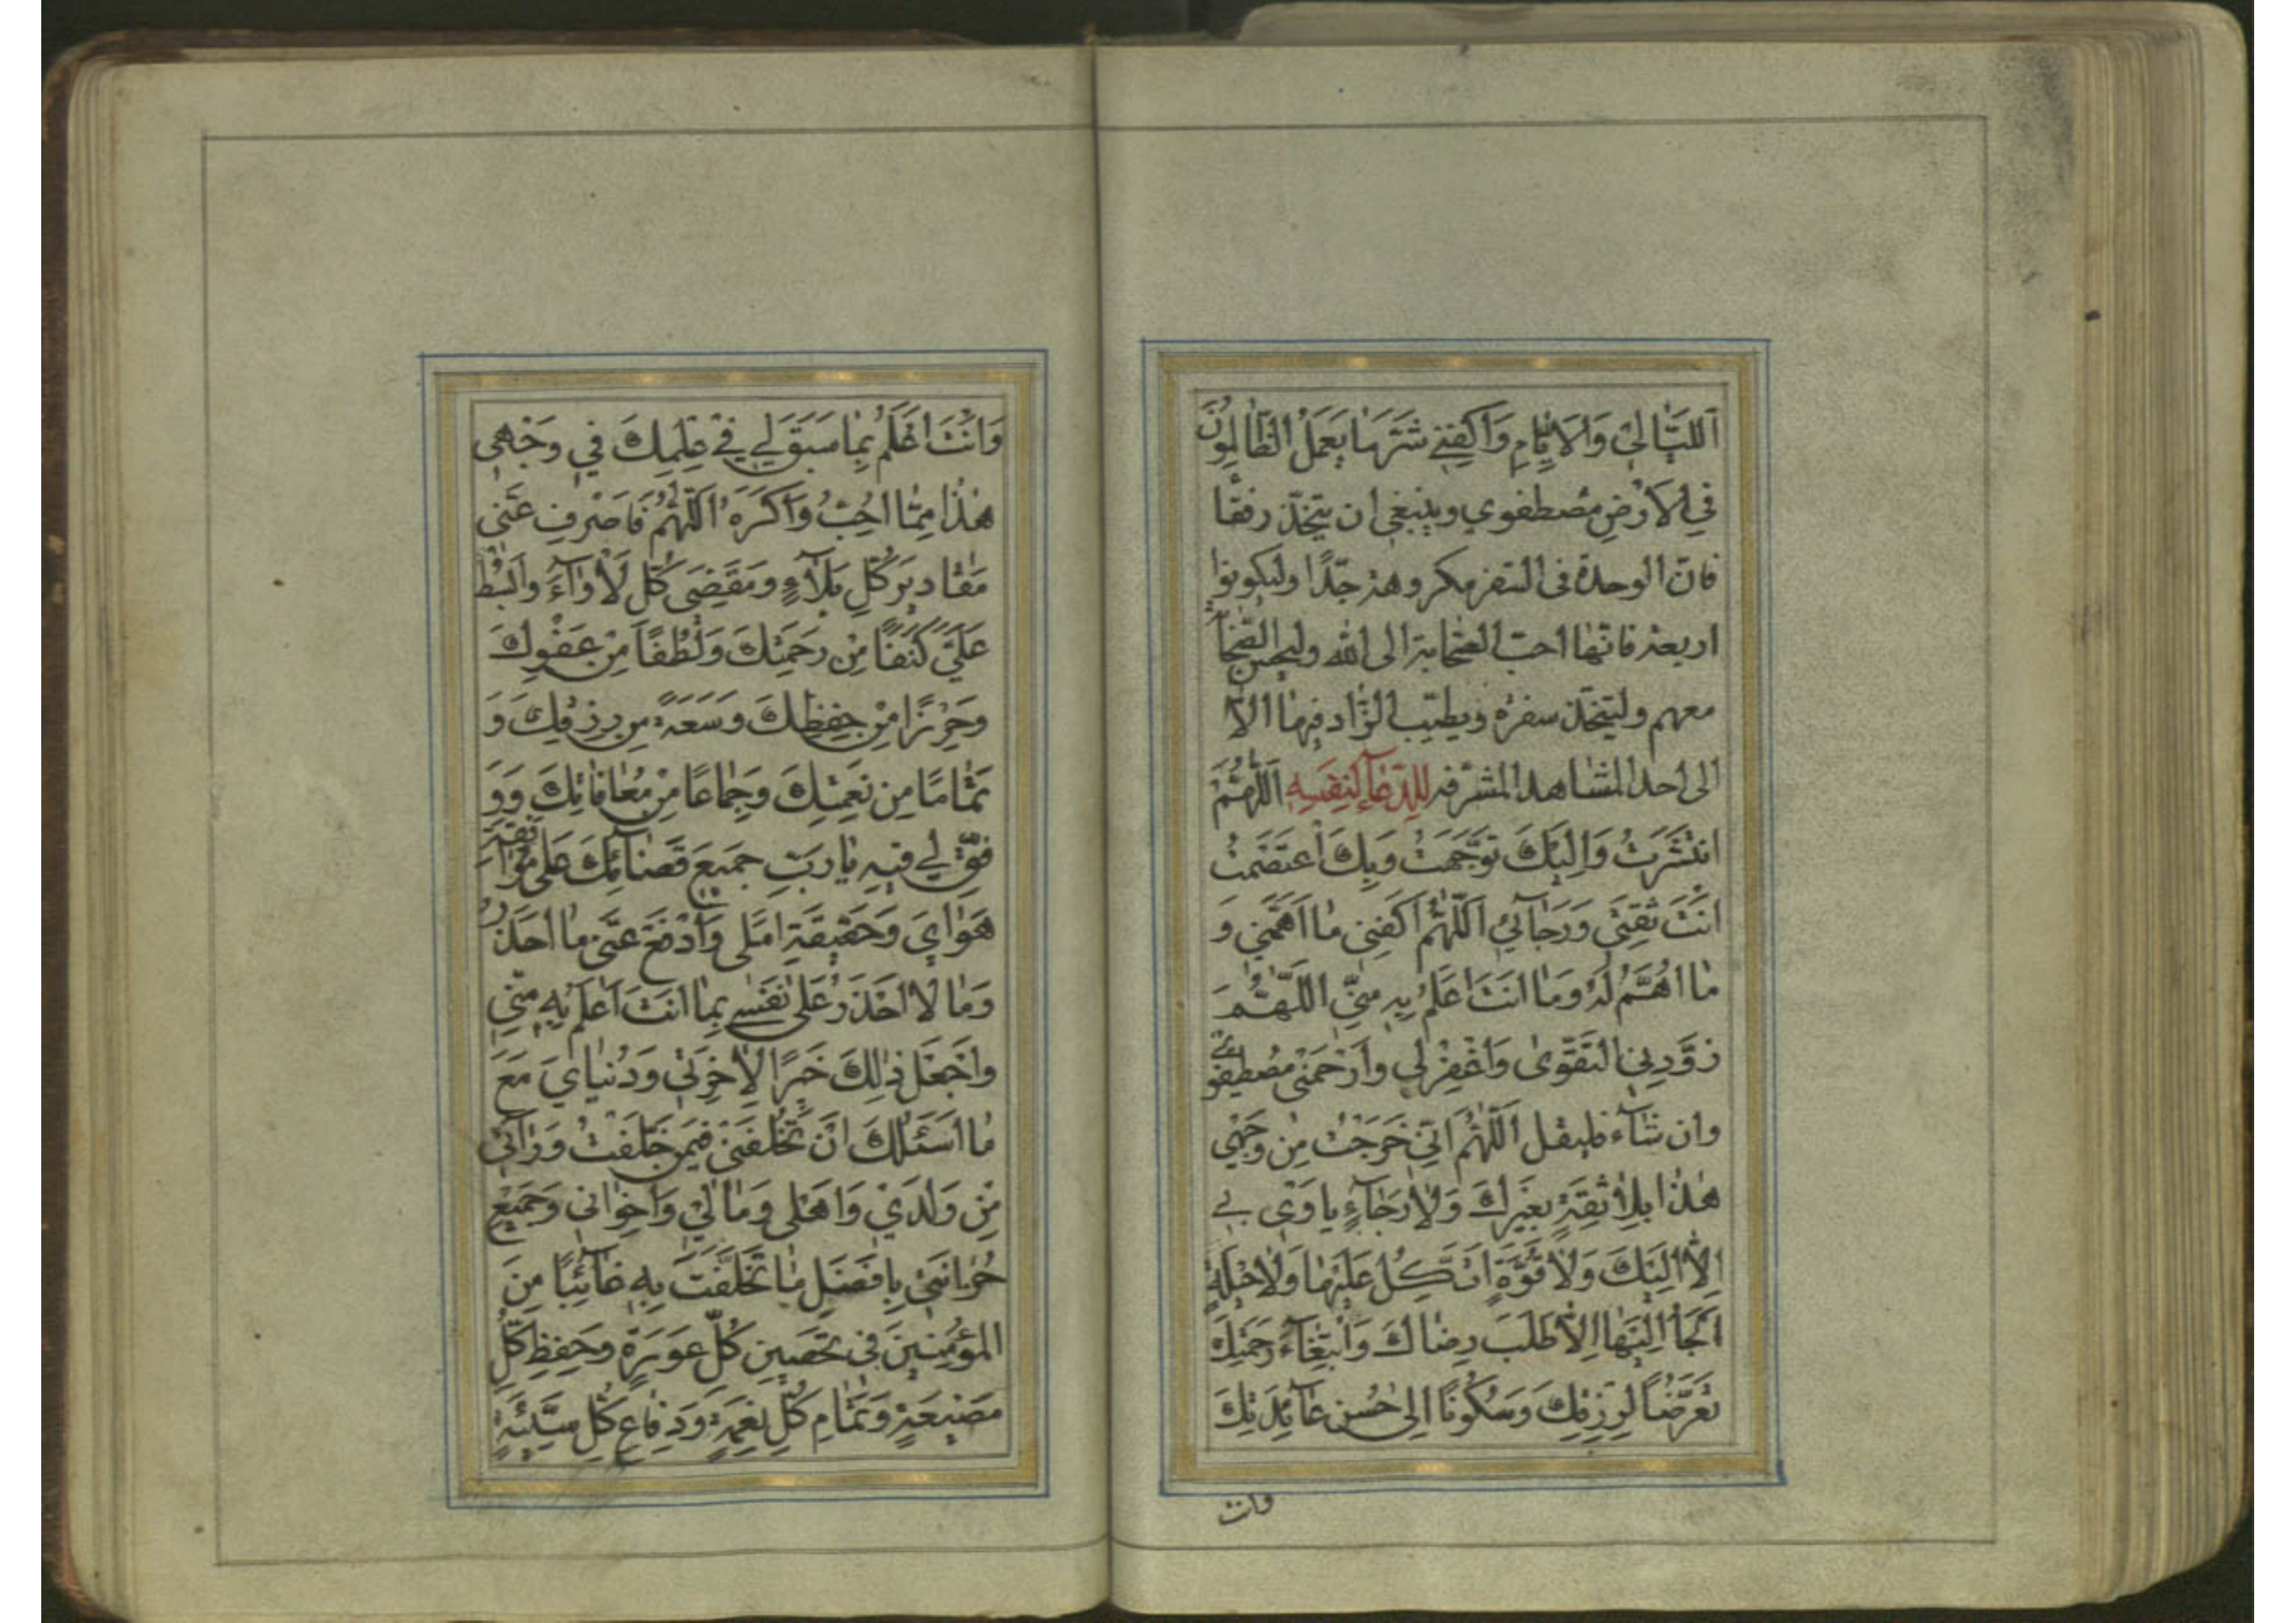 اَللَّيَالِيْ وَالْاَيَّامِ وَاكْفِنِيْ شَرَّ مَا يَعْمَلُ الظَّالِمُوْنَ
فِي الْاَرْضِ مصطفوي وينبغي ان يتخذ رفقا
فانّ الوحدة في السفر مكروهة جدًّا وليكونوا
اربعة فانها احبّ الصّحابة الى الله وليحسن الصحا
معهم وليتخذ سفرة ويطيّب الزّاد فيها الّا
الى احد المشاهد المشرفه للدّعآء لنفسه اَللّٰهُمَّ
انْتَشَرْتُ وَاِلَيْكَ تَوَجَّهْتُ وَبِكَ اعْتَصَمْتُ
اَنْتَ ثِقَتِيْ وَرَجَآئِيْ اَللّٰهُمَّ اكْفِنِي مٰا اَهَمَّنِي وَ
مٰا اَهْتَمُّ لَهُ وَمٰا اَنْتَ اَعْلَمُ بِهِ مِنِّيْ اَللّٰهُمَّ
زَوِّدْنِي التَّقْوىٰ وَاغْفِرْ لِي وَارْحَمْنِي مصطفو
وان شآء فليقل اَللّٰهُمَّ اِنِّيْ خَرَجْتُ مِنْ وَجْهِي
هٰذَا بِلٰا ثِقَةٍ بِغَيْرِكَ وَلٰا رَجٰآءٍ يَأوي بِي
اِلّٰا اِلَيْكَ وَلٰا قُوَّةٍ اَتَّكِلُ عَلَيْهٰا وَلٰا حِيْلَةٍ
اَلْجَأُ اِلَيْهٰا اِلّٰا طَلَبَ رِضٰاكَ وَابْتِغٰآءَ رَحْمَتِكَ
تَعَرُّضًا لِرِزْقِكَ وَسُكُونًا اِلىٰ حُسْنِ عٰآئِدَتِكَ
وانت
وَاَنْتَ اَعْلَمُ بِمٰا سَبَقَ لِي فِيْ عِلْمِكَ فِي وَجْهِي
هٰذٰا مِمّٰا اُحِبُّ وَاَكْرَهُ اَللّٰهُمَّ فَاصْرِفْ عَنّي
مَقٰادِيرَ كُلِّ بَلٰآءٍ وَمَقْضِيَّ كُلِّ لَأْوٰآءَ وَابْسُطْ
عَلَيَّ كَنَفًا مِنْ رَحْمَتِكَ وَلُطْفًا مِنْ عَفْوِكَ
وَحِرْزًا مِنْ حِفْظِكَ وَسَعَةً مِنْ رِزْقِكَ وَ
تَمٰامًا مِنْ نِعْمَتِكَ وَجِمٰاعًا مِنْ مُعٰافٰاتِكَ وَوَ
فِّقْ لِي فِيهِ يٰا رَبِّ جَمِيعَ قَضٰآئِكَ عَلىٰ مُوٰافَقَةِ
هَوٰايَ وَحَقِيقَةِ اَمَلِي وَادْفَعْ عَنّي مٰا اَحْذَرُ
وَمٰا لٰا اَحْذَرُ عَلىٰ نَفْسِي بِمٰا اَنْتَ اَعْلَمُ بِهِ مِنّي
وَاجْعَلْ ذٰلِكَ خَيْرًا لِاٰخِرَتِي وَدُنْيٰايَ مَعَ
مٰا اَسْئَلُكَ اَنْ تَخْلُفَنِيْ فِيمَنْ خَلَّفْتُ وَرٰآئي
مِنْ وَلَدِيْ وَاَهْلي وَمٰالِيْ وَاِخْوٰاني وَجَمِيْعِ
حُزٰانَتِيْ بِاَفْضَلِ مٰا تَخْلُفُ بِهِ غٰآئِبًا مِنَ
المُؤْمِنِينَ فِي تَحْصِينِ كُلِّ عَوْرَةٍ وَحِفْظِ كُلِّ
مَضِيعَةٍ وَتَمٰامِ كُلِّ نِعْمَةٍ وَدِفٰاعِ كُلِّ سَيِّئَةٍ